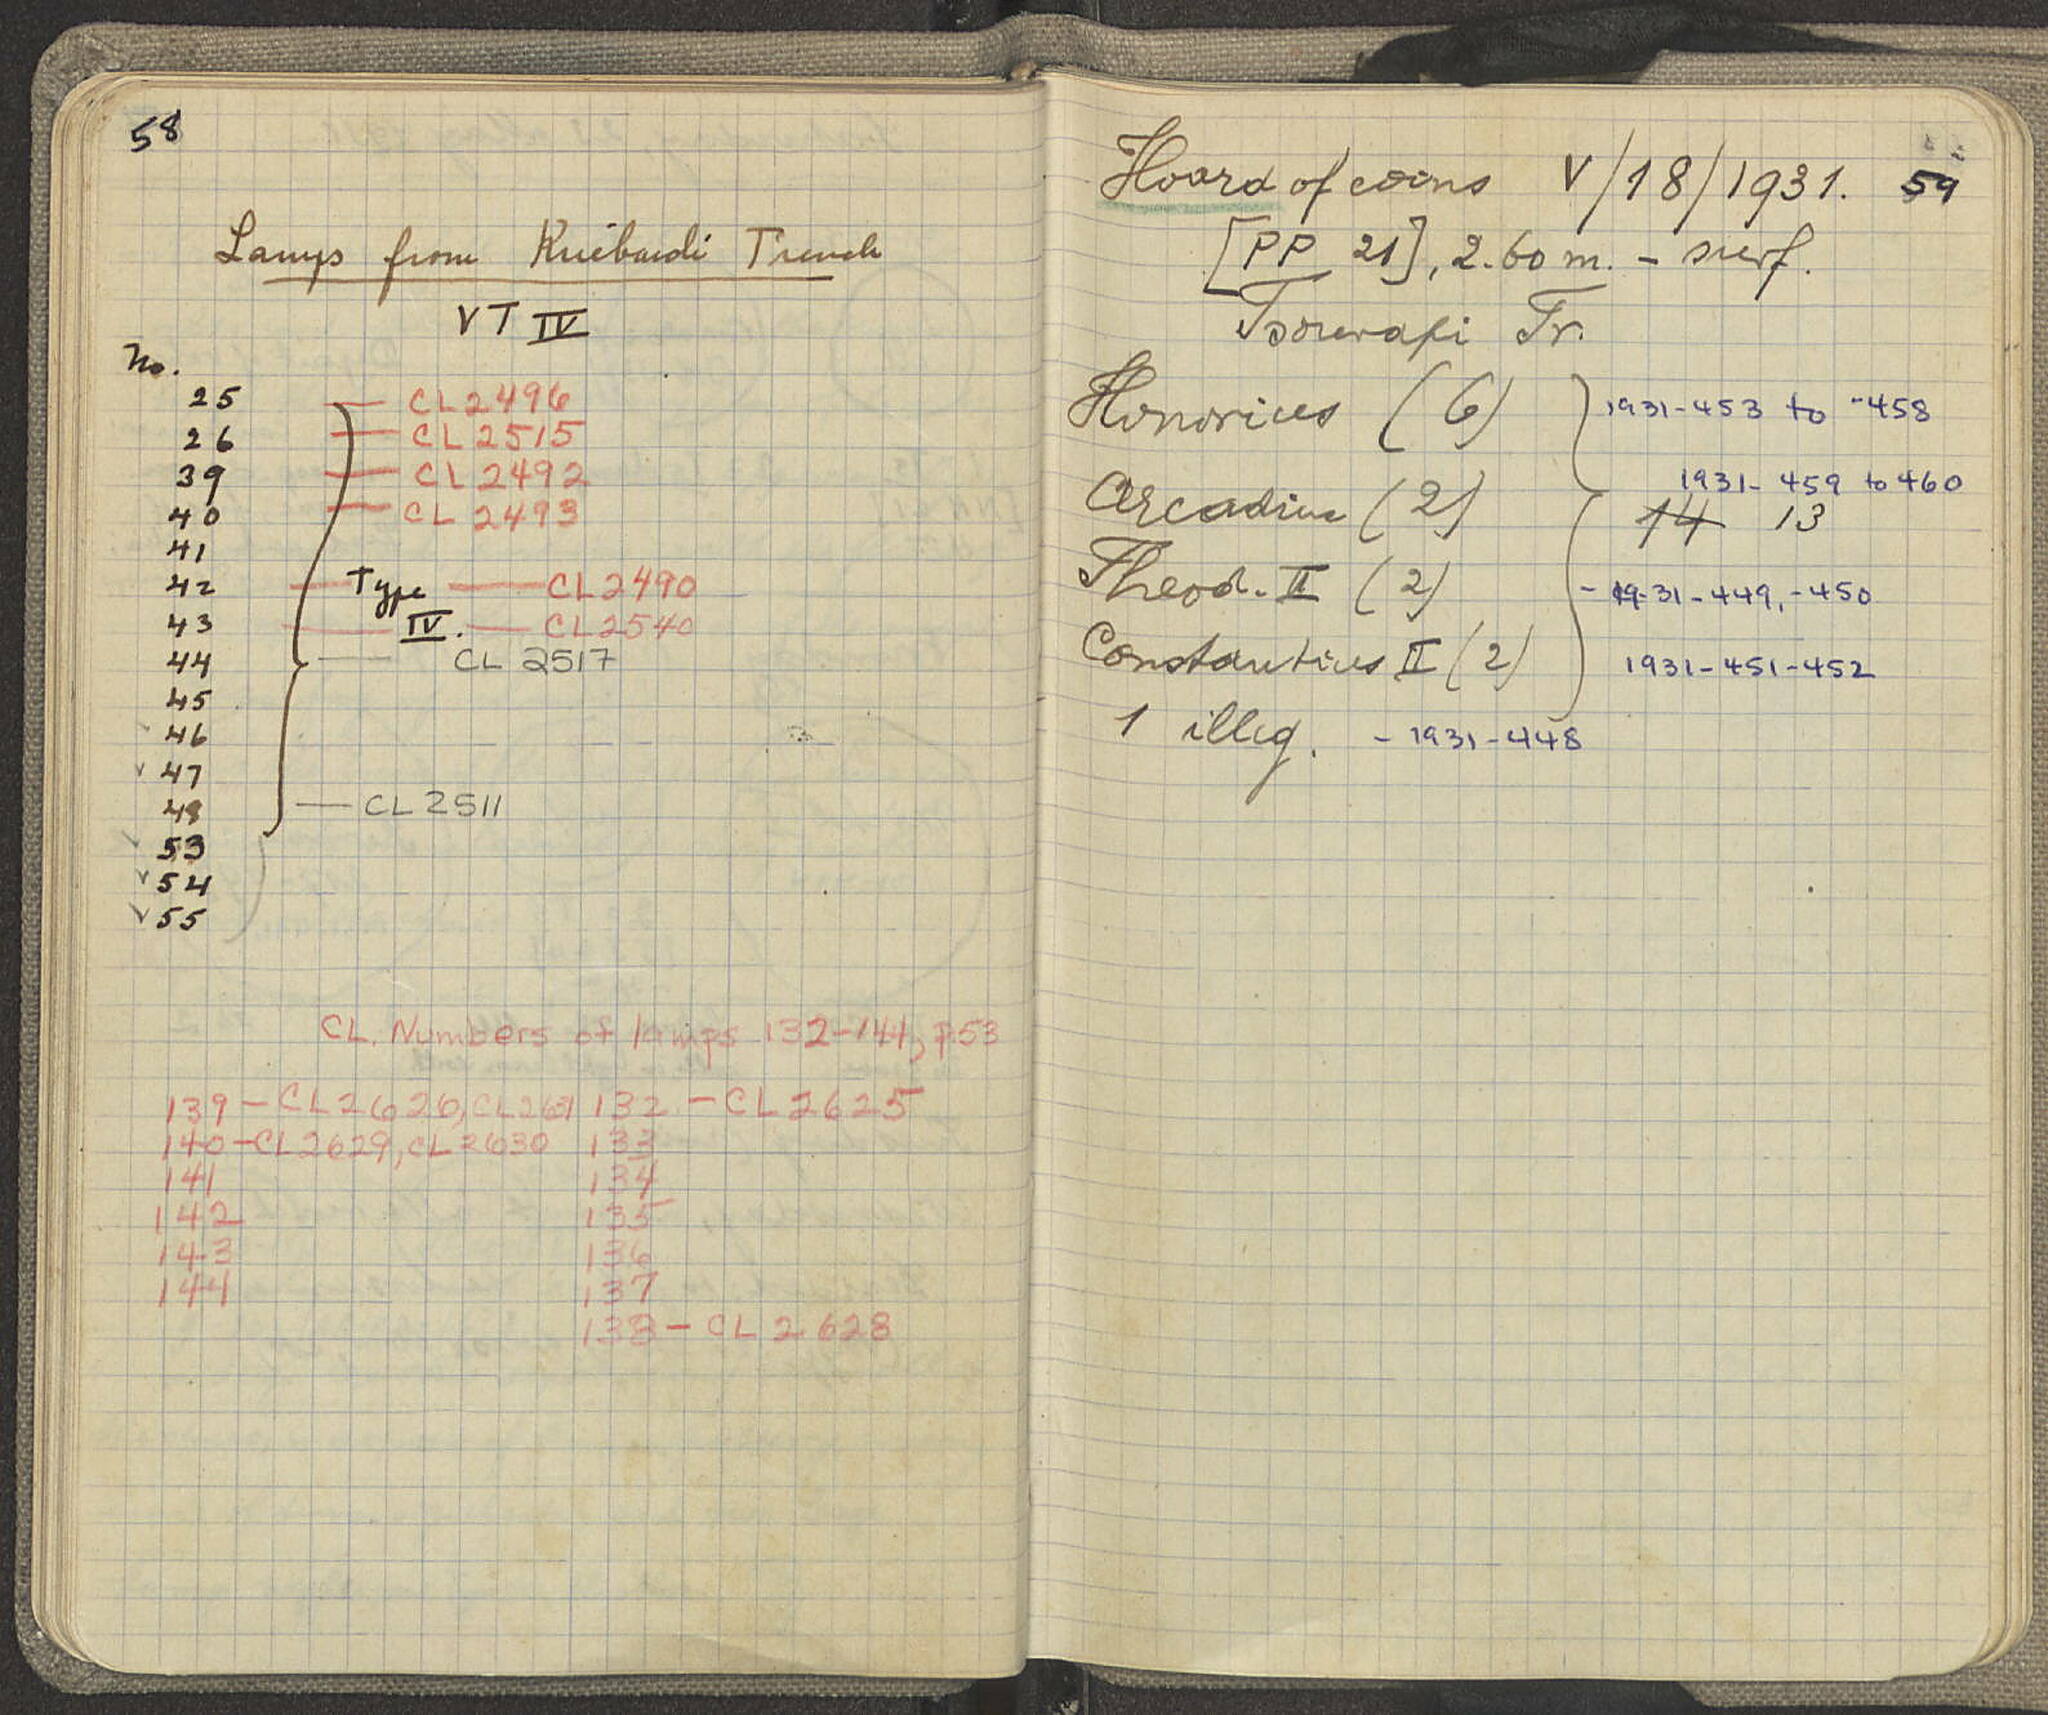 58
Lamps from Kriebardi Trench
VT IV
No.
25 — CL 2496
26 — CL 2515
39 — CL 2492
40 — CL 2493
41
42 — Type — CL 2490
43 — IV. — CL 2540
44 — CL 2517
45
46
47
48 — CL 2511
53
54
55
CL. Numbers of lamps 132-144, p.53
139 - CL2626, 132 - CL2625
140 - CL2629, CL2630 133
141 134
142 135
143 136
144 137
138 - CL 2628
Hoard of coins V/18/1931. 59
[PP 21], 2.60 m. - surf.
Tr.
Honorius (6) 1931-453 to -458
1931-459 to 460
Arcadius (2) 14 13
Theod. II (2) - 1931-449, -450
Constantius II (2) 1931-451-452
1 illeg. - 1931-448